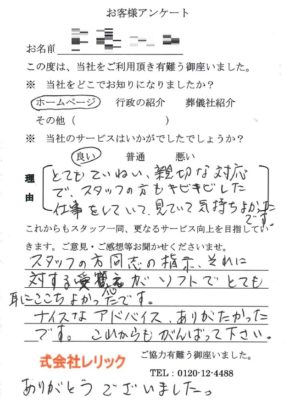 お客様アンケート
お名前
この度は、当社をご利用頂き有難う御座いました。
※ 当社をどこでお知りになりましたか？
ホームページ 行政の紹介 葬儀社紹介
その他（ ）
※ 当社のサービスはいかがでしたでしょうか？
良い 普通 悪い
理由
とてもていねい、親切な対応
で、スタッフの方もキビキビした
仕事をしていて、見ていて気持ちよかった
です。
これからもスタッフ一同、更なるサービス向上を目指してい
きます。ご意見・ご感想等お聞かせくださいませ。
スタッフの方同志の指示、それに
対する がソフトでとても
耳にここちよかったです。
ナイスなアドバイス、ありがたかった
です。これからもがんばって下さい。
式会社レリック
ご協力有難う御座いました。
TEL：0120-12-4488
ありがとうございました。